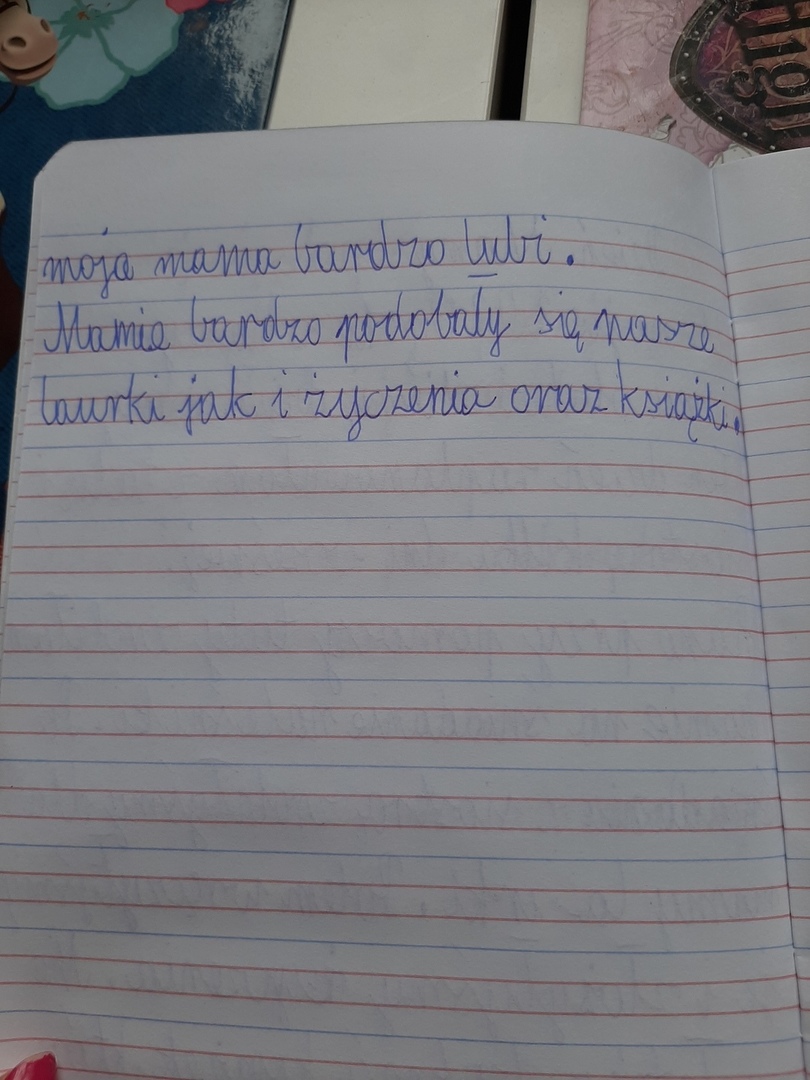 moja mama bardzo lubi.
Mamie bardzo podobały się nasze
laurki jak i życzenia oraz książki.